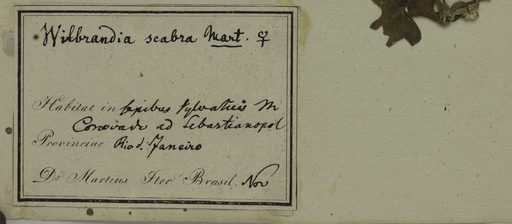 Wilbrandia scabra Mart. ♀
Habitat in sepibus sylvaticis M
ad Sebastianopol
Provinciae Rio d. Janeiro
Dr Martius Iter Brasil. Nov